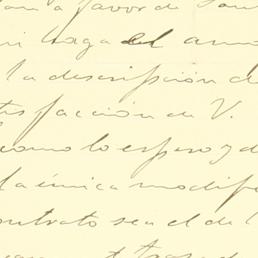 a favor de
haga el amo
la descripción de
tisfacción de V.
como lo espero y d
la única modifi
ontrato sea el de l